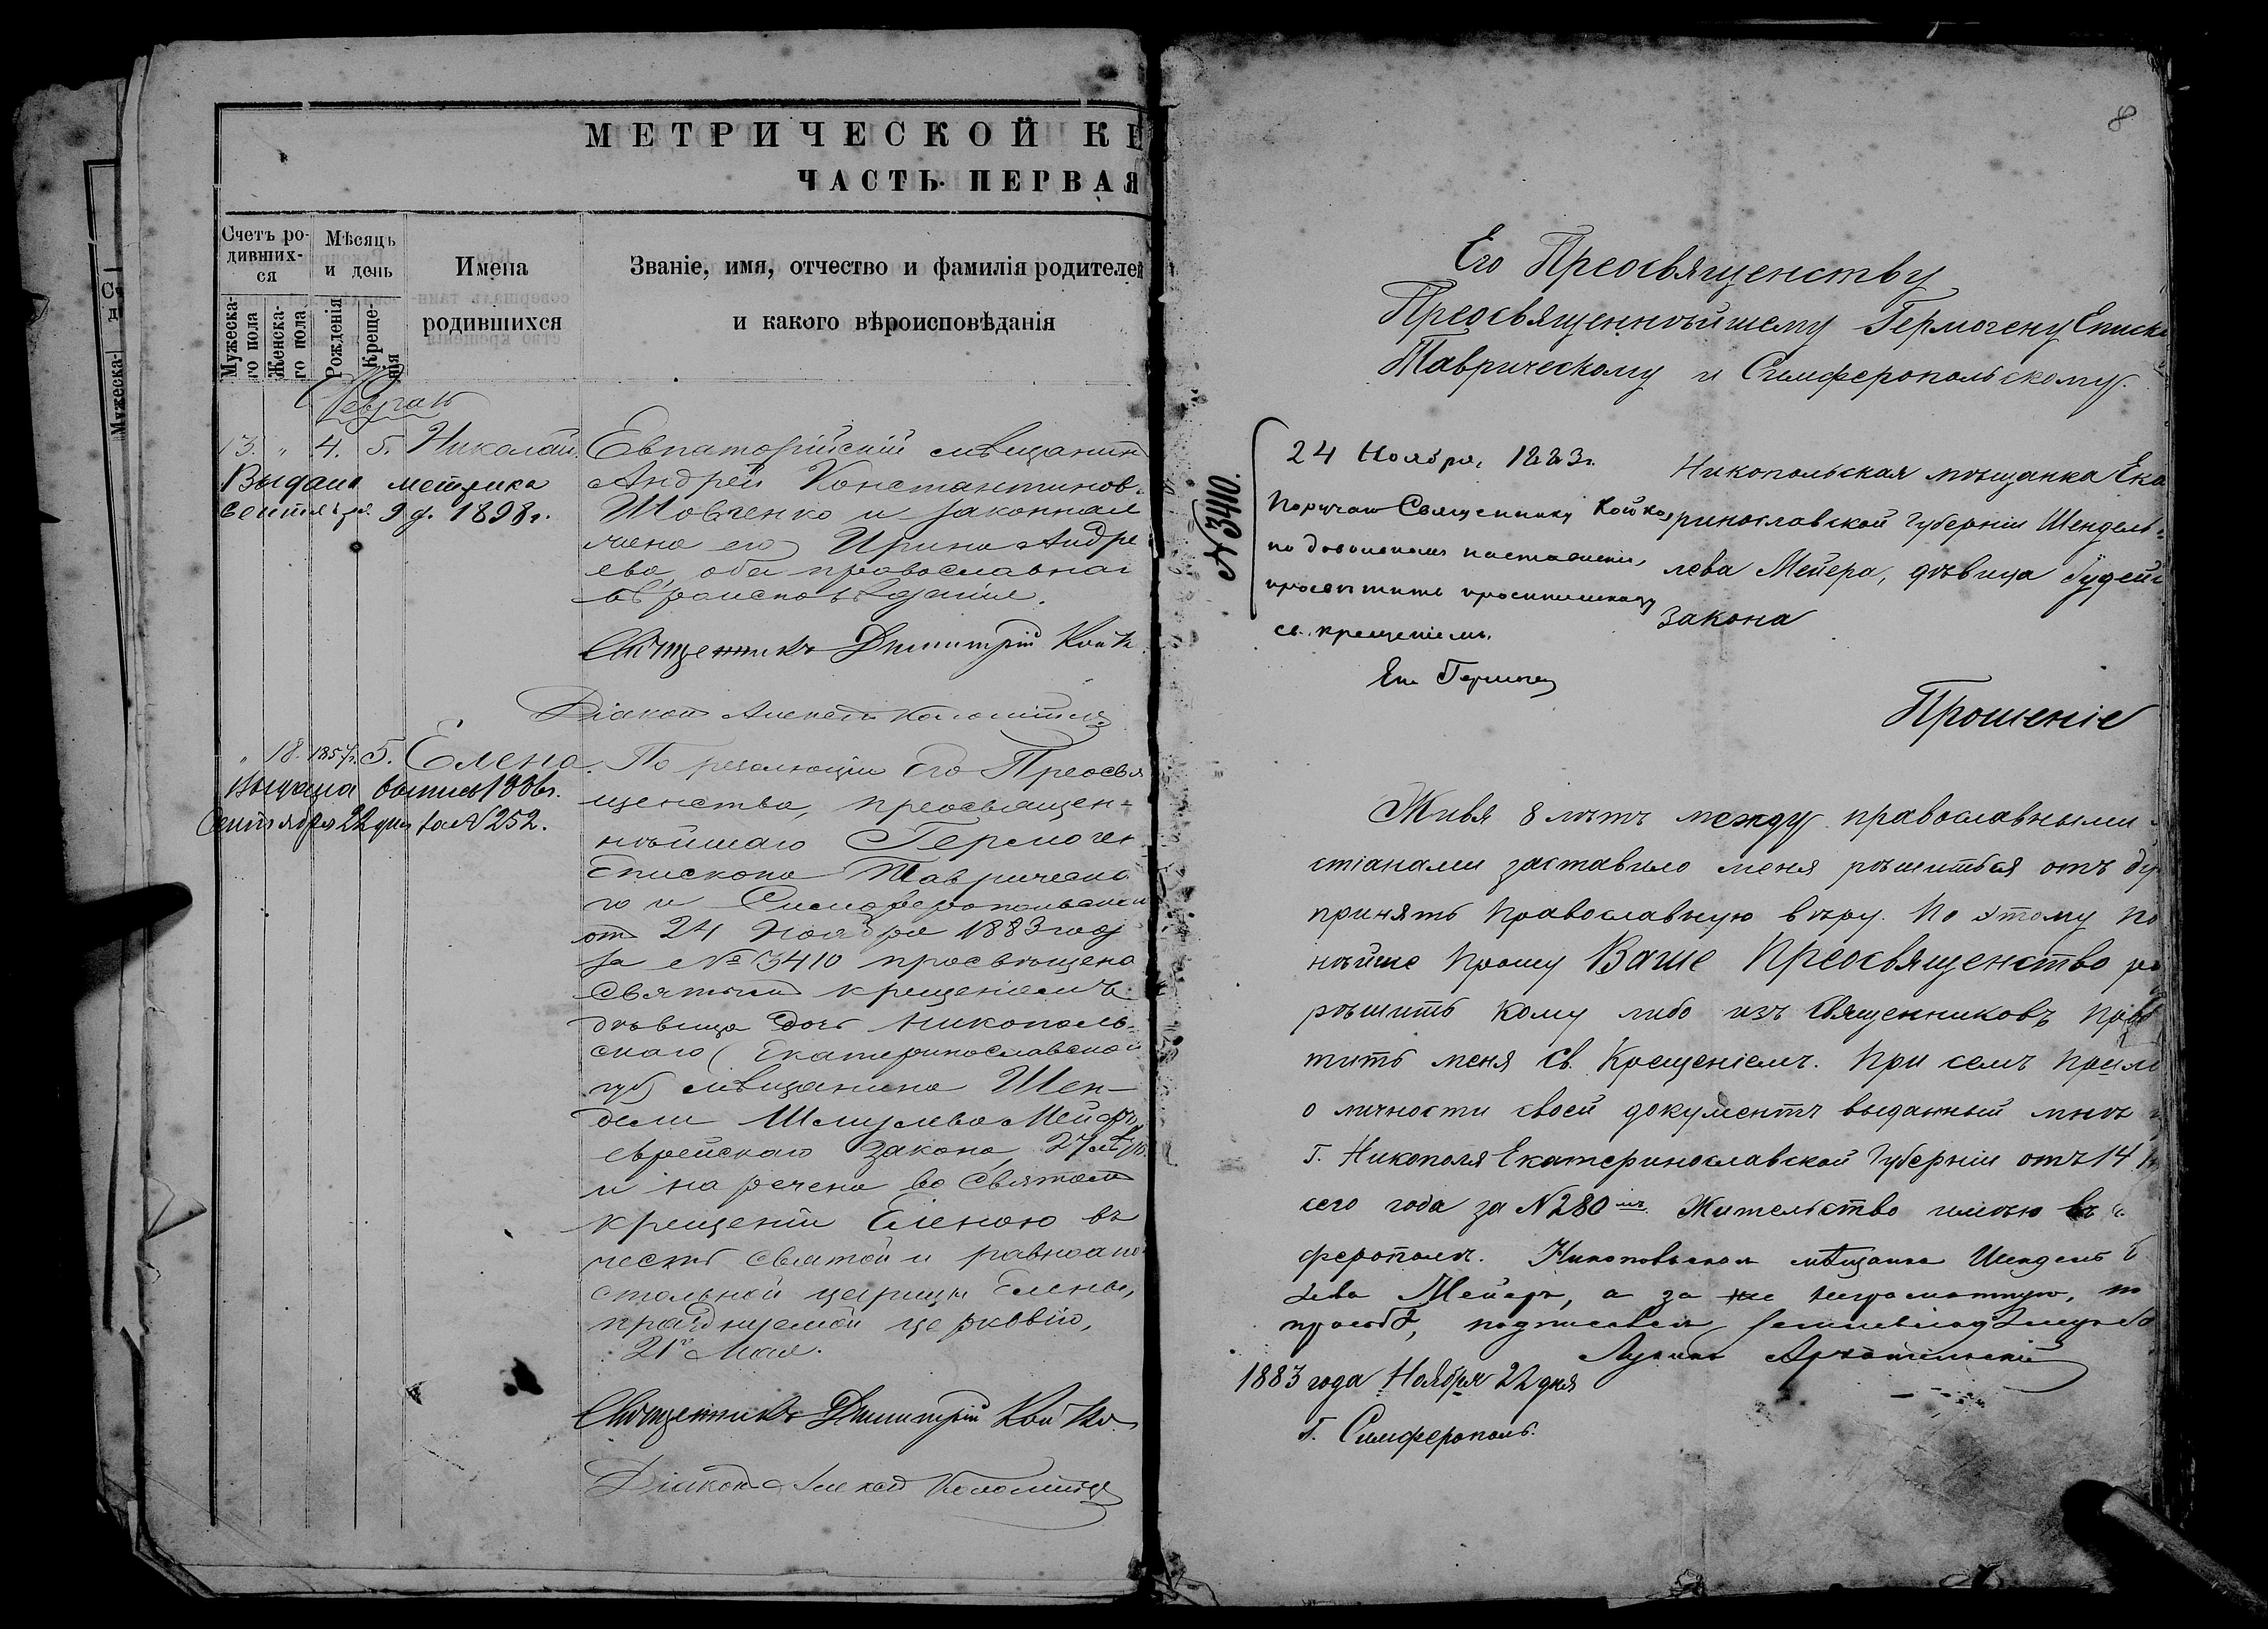 МЕТРИЧЕСКОЙ КН
ЧАСТЬ ПЕРВАЯ
Счетъ ро-
дивших-
ся
Мужеска-
го пола
Женска-
го пола
Мѣсяцъ
и день
Рожденія
Креще-
нія
Имена
родившихся
Званіе, имя, отчество и фамилія родителей
и какого вѣроисповѣданія
Февраль
13. " 4. 5. Николай.
Выдана метрика
Сентября 9 д. 1898 г.
Евпаторійскій мѣщанинъ
Андрей Константинов.
Шовченко и законная
жена его Ирина Андре
ева, оба православнаг
вѣроисповѣданія.
Священникъ Димитрій Койко
Діаконъ Алексѣй Коломійцъ
" 18. 1857 г. 5. Елена.
Выдана выпись 1906 г.
Сентября 22 дня за N 252.
По резолюціи Его Преосвя
щенства, преосвящен-
нѣйшаго Гермоген
Епископа Таврическа
го и Симферопольскаго
отъ 24 Ноября 1883 года
за № 3410 просвѣщена
святымъ крещеніемъ
дѣвица дочь Никополь-
скаго (Екатеринославской
губ) мѣщанина Шен-
дели Шмулева Мейеръ,
еврейскаго закона, 27 лѣтъ.
и наречена во Святомъ
крещеніи Еленою въ
честь святой и равноапо
стольной царицы Елены,
празднуемой церковію,
21го Мая.
Священникъ Димитрій Койко.
Діаконъ Алексѣй Коломійцъ
8
Его Преосвященству
Преосвященнѣйшему Гермогену Еписк
Таврическому и Симферопольскому.
N 3410.
24 Ноября 1883 г.
Поручаю Священнику Койко,
по довольномъ наставленіи,
просвѣтить просительницу
св. крещеніемъ.
Еп. Гермоген
Никопольская мѣщанка Ека
ринославской Губерніи Шендель
лева Мейера, дѣвица Іудейс
закона
Прошеніе
Живя 8 лѣтъ между православными
стіанами заставило меня рѣшиться отъ ду
принять Православную вѣру. По этому По
нѣйше Прошу Ваше Преосвященство ра
рѣшить кому либо изъ Священниковъ Просв
тить меня Св. Крещеніемъ. При семъ Прило
о личности своей документъ выданный мнѣ
Г. Никополя Екатеринославской Губерніи отъ 14
сего года за N 280 мъ. Жительство имѣю въ С.
ферополѣ. Никопольская мѣщанка Шендель
лева Мейеръ, а за не неграмотную, по
просьбѣ, подписался
1883 года Ноября 22 дня
Г. Симферополь.